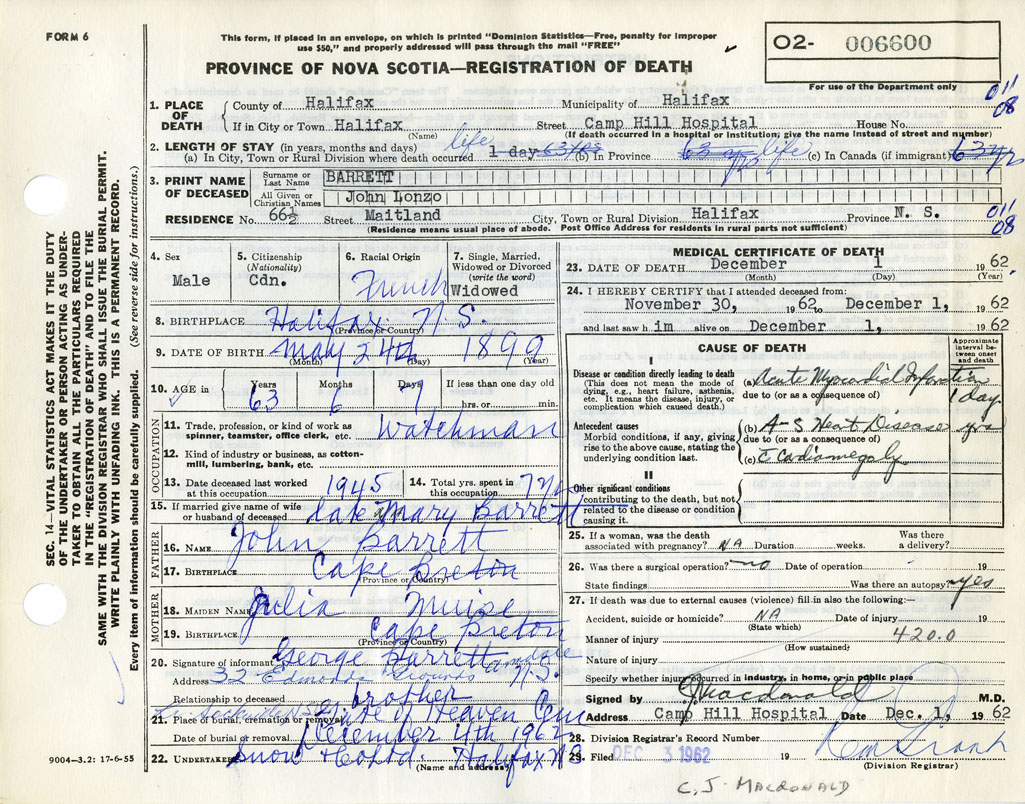 FORM 6
This form, if placed in an envelope, on which is printed "Dominion Statistics—Free, penalty for improper
use $50," and properly addressed will pass through the mail "FREE"
O2- 006600
For use of the Department only
PROVINCE OF NOVA SCOTIA—REGISTRATION OF DEATH
011
08
1. PLACE OF DEATH { County of Halifax Municipality of Halifax
If in City or Town Halifax Street Camp Hill Hospital House No.
(Name) (If death occurred in a hospital or institution, give the name instead of street and number)
2. LENGTH OF STAY (in years, months and days)
(a) In City, Town or Rural Division where death occurred life 1 day 63 yrs (b) In Province 63 yrs life (c) In Canada (if immigrant) 63 yrs
3. PRINT NAME OF DECEASED { Surname or Last Name BARRETT
All Given or Christian Names John Lonzo
RESIDENCE No. 66½ Street Maitland City, Town or Rural Division Halifax Province N. S.
(Residence means usual place of abode. Post Office Address for residents in rural parts not sufficient)
011
08
4. Sex Male
5. Citizenship (Nationality) Cdn.
6. Racial Origin French
7. Single, Married, Widowed or Divorced (write the word) Widowed
8. BIRTHPLACE Halifax N.S.
(Province or Country)
9. DATE OF BIRTH May 24th 1899
(Month) (Day) (Year)
10. AGE in Years 63 Months 6 Days 7 If less than one day old
hrs. or min.
OCCUPATION
11. Trade, profession, or kind of work as
spinner, teamster, office clerk, etc. Watchman
12. Kind of industry or business, as cotton-
mill, lumbering, bank, etc.
13. Date deceased last worked
at this occupation 1945
14. Total yrs. spent in
this occupation 7 yrs
15. If married give name of wife
or husband of deceased late Mary Barrett
FATHER
16. NAME John Barrett
17. BIRTHPLACE Cape Breton
(Province or Country)
MOTHER
18. MAIDEN NAME Julia Muise
19. BIRTHPLACE Cape Breton
(Province or Country)
20. Signature of informant George Barrett
Address 32 Edmonds Grounds N.S.
Relationship to deceased brother
21. Place of burial, cremation or removal Gate of Heaven Cem
Date of burial or removal December 4th 1962
22. UNDERTAKER Snow & Co Ltd. Halifax NS
(Name and address)
MEDICAL CERTIFICATE OF DEATH
23. DATE OF DEATH December 1 1962
(Month) (Day) (Year)
24. I HEREBY CERTIFY that I attended deceased from:
November 30, 1962 to December 1, 1962
and last saw him alive on December 1, 1962
CAUSE OF DEATH
Approximate interval between onset and death
I
Disease or condition directly leading to death
(This does not mean the mode of
dying, e.g., heart failure, asthenia,
etc. It means the disease, injury, or
complication which caused death.)
(a) Acute Myocardial Infarction 1 day.
due to (or as a consequence of)
Antecedent causes
Morbid conditions, if any, giving
rise to the above cause, stating the
underlying condition last.
(b) A-S Heart Disease yrs
due to (or as a consequence of)
(c) c Cardiomegaly
II
Other significant conditions
contributing to the death, but not
related to the disease or condition
causing it.
25. If a woman, was the death
associated with pregnancy? NA Duration weeks. Was there a delivery?
26. Was there a surgical operation? no Date of operation 19
State findings Was there an autopsy? yes
27. If death was due to external causes (violence) fill in also the following:—
Accident, suicide or homicide? NA Date of injury 19
(State which)
Manner of injury 420.0
(How sustained)
Nature of injury
Specify whether injury occurred in industry, in home, or in public place
Signed by J Macdonald M.D.
Address Camp Hill Hospital Date Dec. 1, 1962
28. Division Registrar's Record Number
29. Filed DEC 3 1962
(Division Registrar)
C. J. MACDONALD
SEC. 14—VITAL STATISTICS ACT MAKES IT THE DUTY
OF THE UNDERTAKER OR PERSON ACTING AS UNDER-
TAKER TO OBTAIN ALL THE PARTICULARS REQUIRED
IN THE "REGISTRATION OF DEATH" AND TO FILE THE
SAME WITH THE DIVISION REGISTRAR WHO SHALL ISSUE THE BURIAL PERMIT.
WRITE PLAINLY WITH UNFADING INK. THIS IS A PERMANENT RECORD.
Every item of information should be carefully supplied. (See reverse side for instructions.)
9004—3.2: 17-6-55